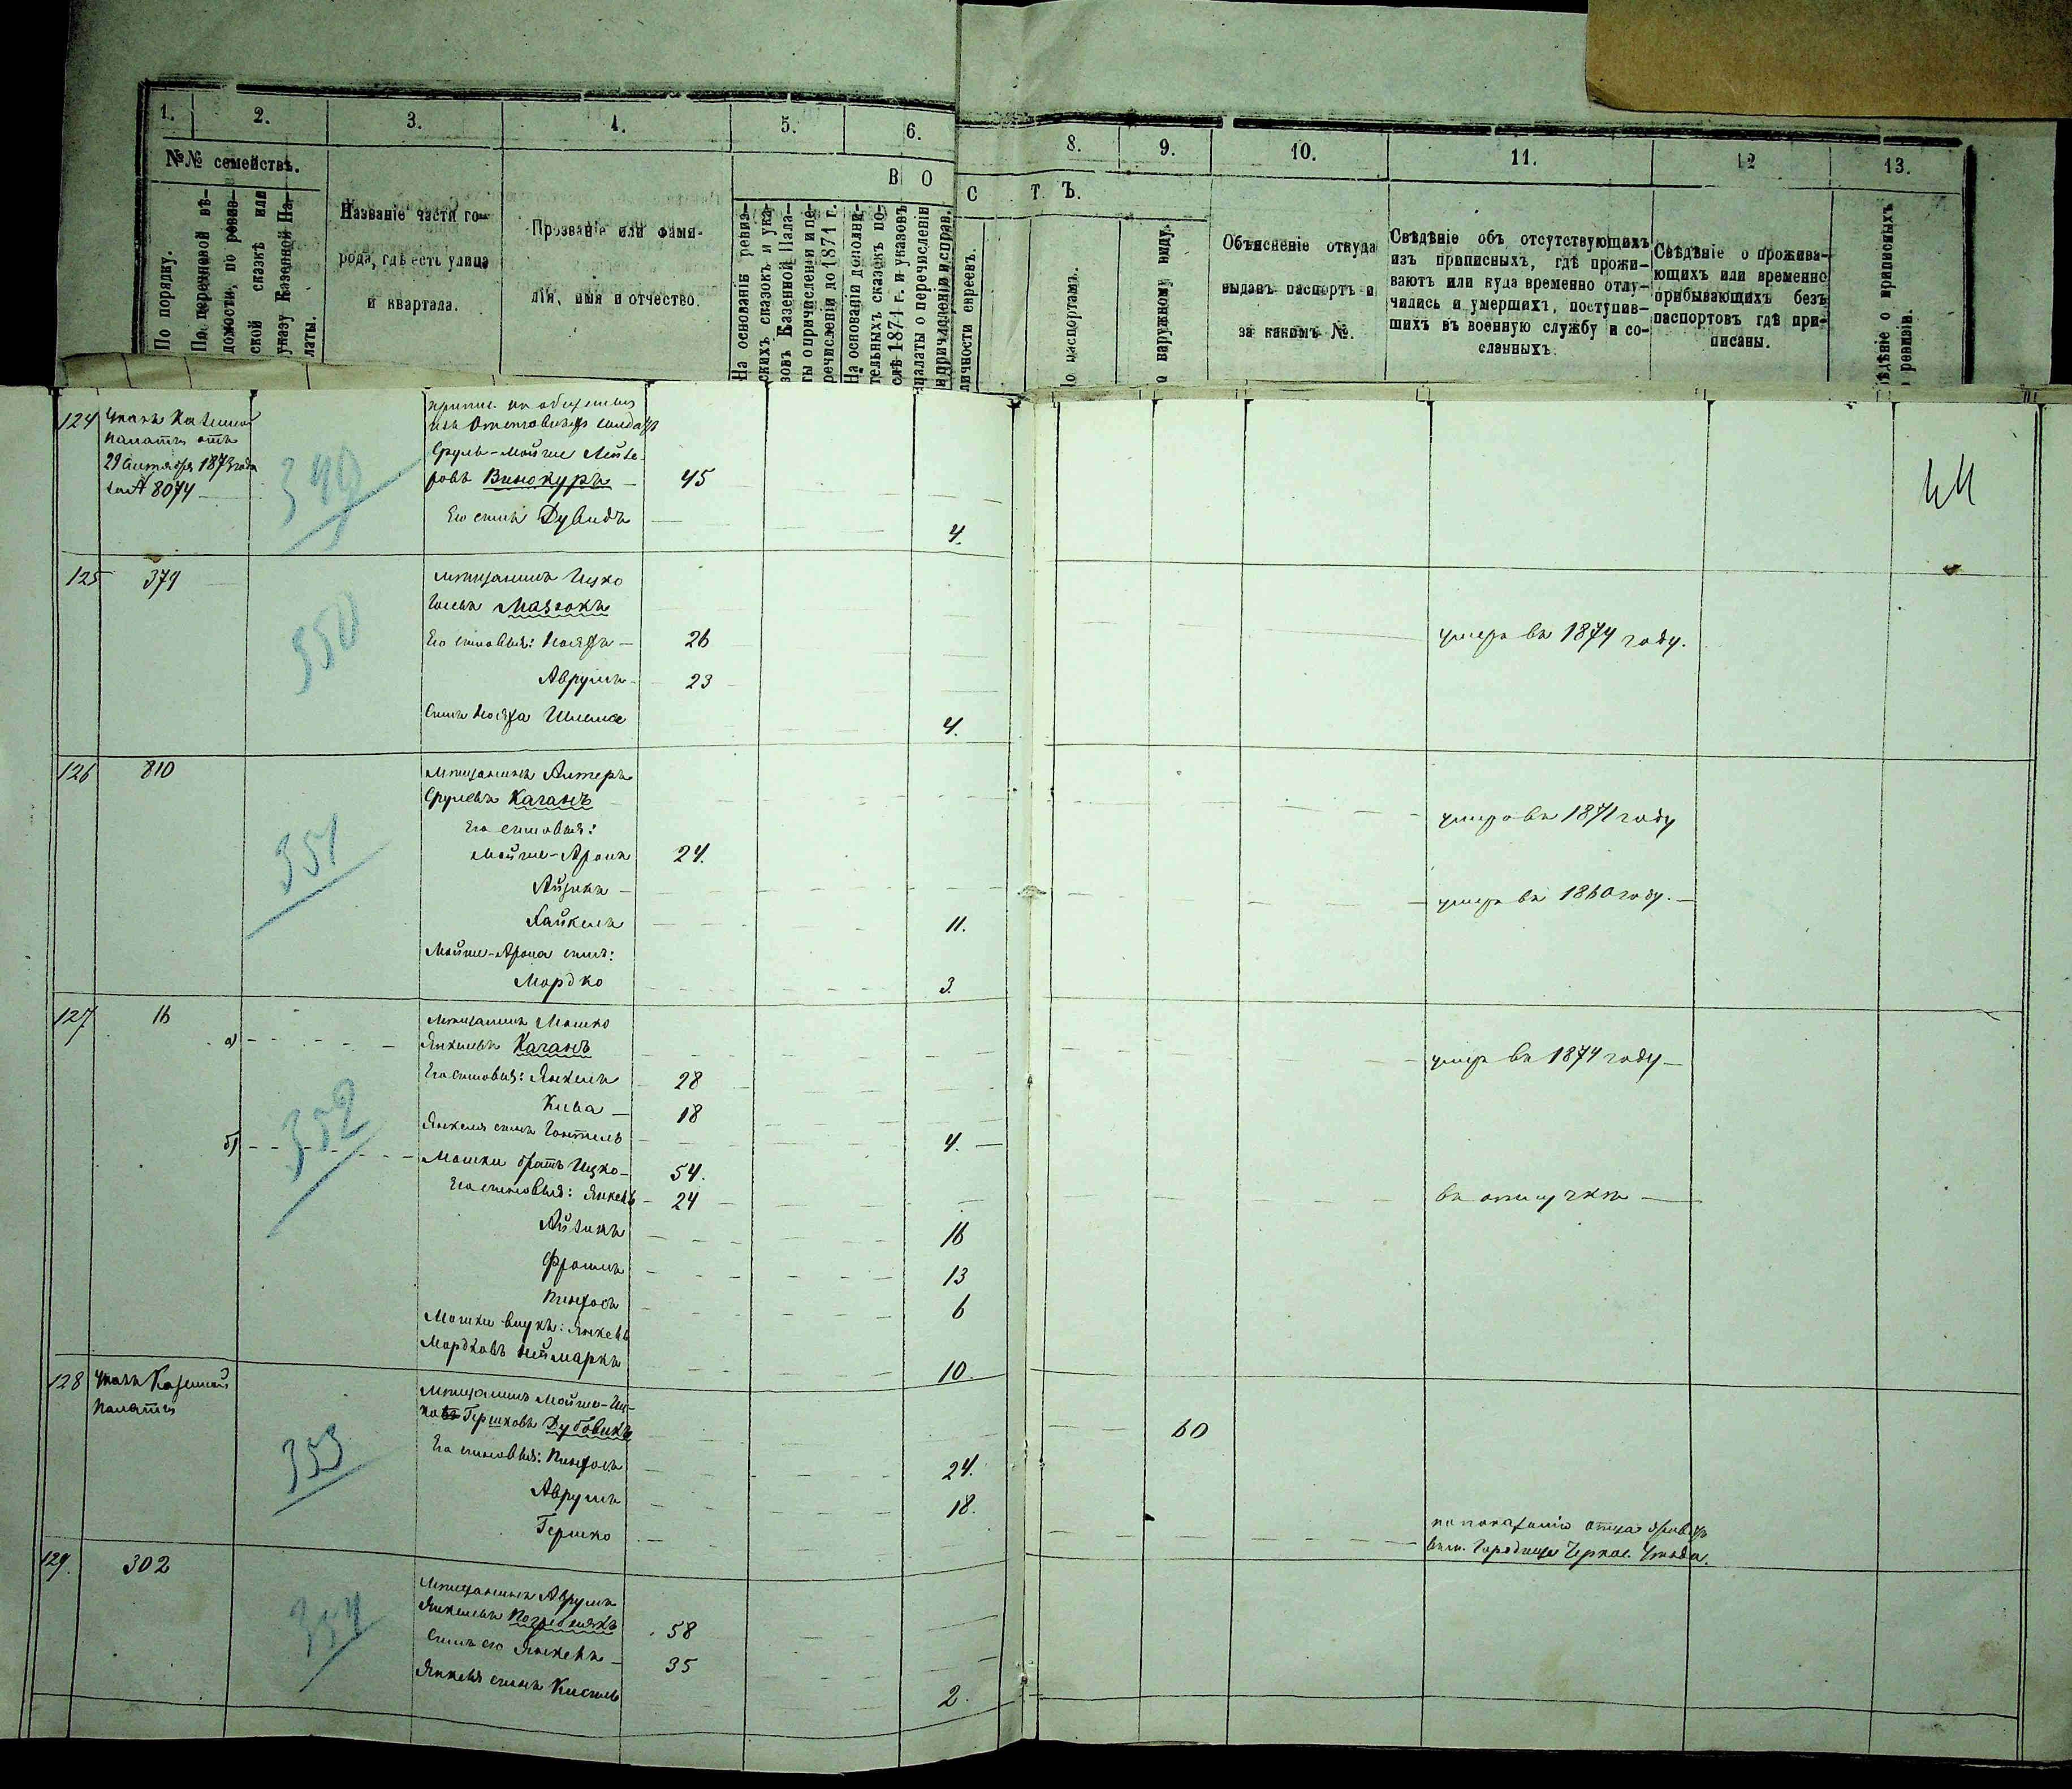 1. 2. 3. 4. 5. 6. 8. 9. 10. 11. 12 13.
№№ семействъ.
В О С Т Ъ.
По порядку.
По перемѣновой вѣ-
домости, по ревиз-
ской сказкѣ или
указу Казенной Па-
латы.
Названіе части го-
рода, гдѣ есть улица
и квартала.
Прозваніе или фами-
лія, имя и отчество.
На основаніи ревиз-
скихъ сказокъ и ука-
зовъ Казенной Пала-
ты о причисленіи и пе-
речисленіи до 1871 г.
На основаніи дополни-
тельныхъ сказокъ по-
слѣ 1871 г. и указовъ
палаты о перечисленіи
и причисленіи и справ.
личности евреевъ.
о паспортамъ.
о наружному виду.
Объясненіе откуда
выданъ паспортъ и
за какимъ №.
Свѣдѣніе объ отсутствующихъ
изъ приписныхъ, гдѣ прожи-
ваютъ или куда временно отлу-
чились и умершихъ, поступив-
шихъ въ военную службу и со-
сланныхъ.
Свѣдѣніе о прожива-
ющихъ или временно
прибывающихъ безъ
паспортовъ гдѣ при-
писаны.
ѣдѣніе о приписныхъ
ревизіи.
124 Указъ Казенной
Палаты отъ
29 Октября 1873 года
за № 8074
349
изъ Отставныхъ солдатъ
Сруль-Мойше Лейзе-
ровъ Винокуръ 45
Его сынъ Дувидъ 4.
125 379
350
мѣщанинъ Ицко
Мазгокъ
умеръ въ 1874 году.
Его сыновья: 26
Аврумъ 23
Сынъ Шлема 4.
126 810
351
мѣщанинъ Алтеръ
Срулевъ Каганъ
умеръ въ 1871 году
Его сыновья:
Мойше-Аронъ 24.
Айзикъ
умеръ въ 1860 году.
Хайкель 11.
Мойше-Арона сынъ:
Мордко 3.
127 16
352
а) мѣщанинъ Мошко
Янкелевъ Каганъ
умеръ въ 1874 году
Его сыновья: Янкель 28
Кива 18
Янкеля сынъ 4.
б) Мошки братъ Ицко 54.
Его сыновья: Янкель 24
въ отлучкѣ
Айзикъ 16
Фроимъ 13
Пинхосъ 6
Мошки внукъ: Янкель
Мордковъ Неймаркъ 10.
128 Указъ Казенной
Палаты
353
мѣщанинъ Мойше-Иц-
ко Гершковъ Дубовикъ 60
Его сыновья: Пинхосъ 24.
Аврумъ 18.
Гершко
по показанію отца
въ м. Городище Черкас. Уѣзда.
129. 302
354
мѣщанинъ Аврумъ
Янкелевъ Погребнякъ 58
Сынъ его Янкель 35
Янкеля сынъ Кисиль 2.